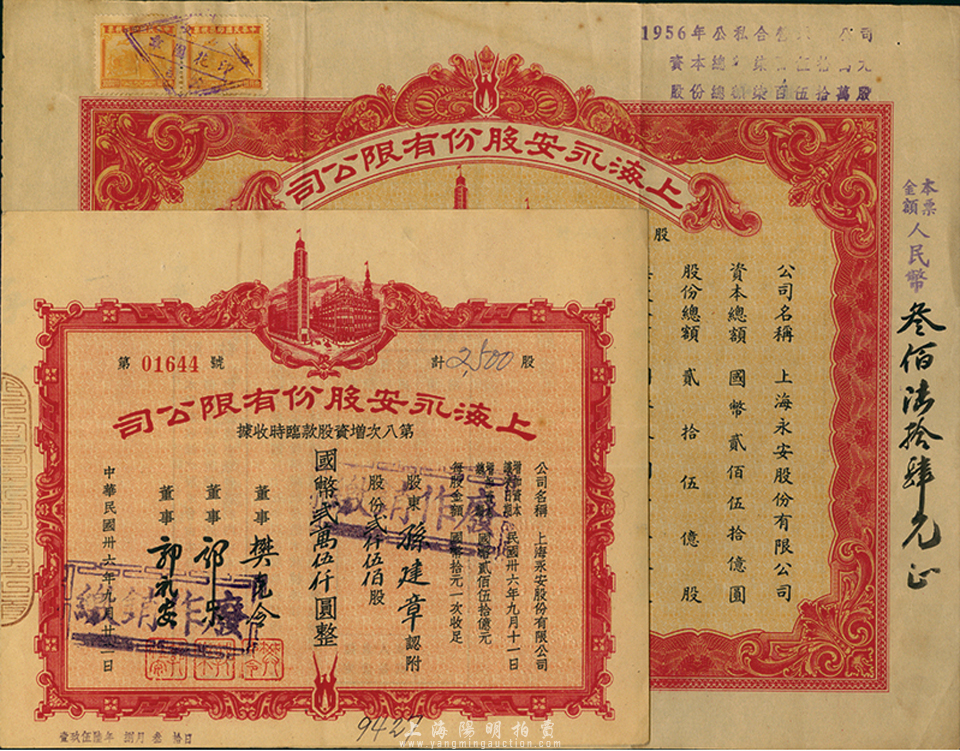 中華民國印花稅票
國花印
1956年公私合營
公司
資本總
股份總額柒百伍拾萬股
上海永安股份有限公司
股
公司名稱 上海永安股份有限公司
資本總額 國幣貳佰伍拾億圓
股份總額 貳拾伍億股
本票金額人民幣
叁佰陸拾肆元正
第 01644 號
計 2,500 股
上海永安股份有限公司
第八次增資股款臨時收據
公司名稱 上海永安股份有限公司
民國卅六年九月十一日
國幣貳佰伍拾億元
每股金額 國幣拾元一次收足
股東 孫建章 認附
股份 貳仟伍佰股
國幣 貳萬伍仟圓整
董事
董事
董事
中華民國卅六年九月廿一日
廢作銷繳
廢作銷繳
上海陽明拍賣
www.yangmingauction.com